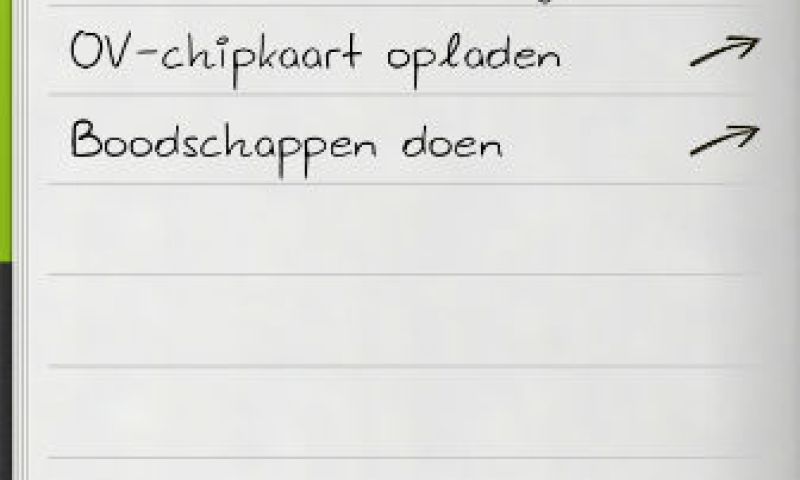 OV-chipkaart opladen
Boodschappen doen